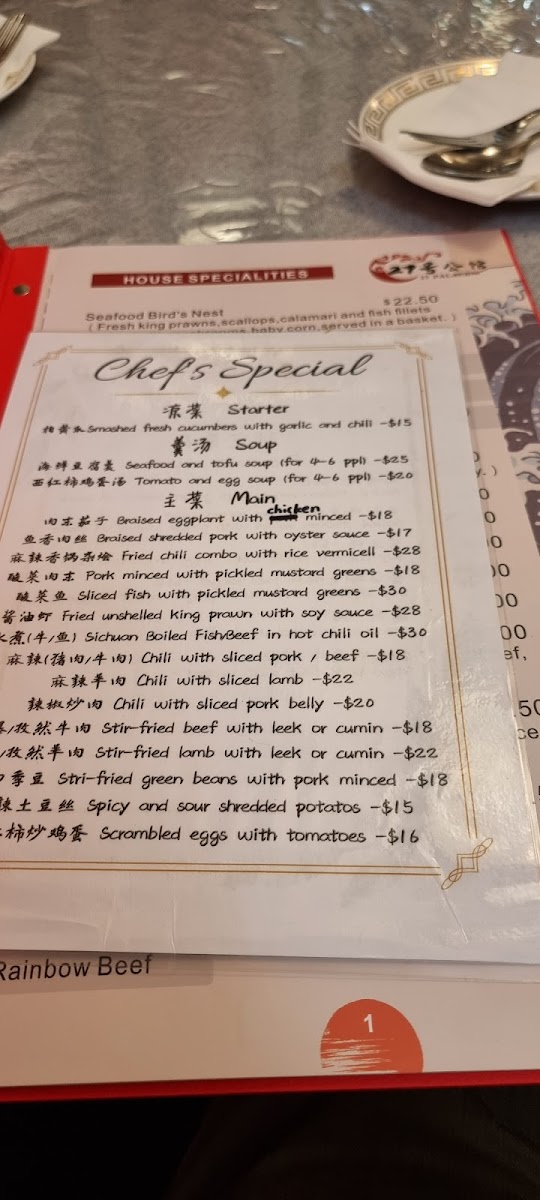 HOUSE SPECIALITIES
29号公馆
Seafood Bird's Nest $22.50
( Fresh king prawns,scallops,calamari and fish fillets
baby corn,served in a basket. )
Chef's Special
凉菜 Starter
拍黄瓜 Smashed fresh cucumbers with garlic and chili -$15
羹汤 Soup
海鲜豆腐羹 Seafood and tofu soup (for 4-6 ppl) -$25
西红柿鸡蛋汤 Tomato and egg soup (for 4-6 ppl) -$20
主菜 Main
chicken
肉末茄子 Braised eggplant with minced -$18
鱼香肉丝 Braised shredded pork with oyster sauce -$17
麻辣香锅杂烩 Fried chili combo with rice vermicell -$28
酸菜肉末 Pork minced with pickled mustard greens -$18
酸菜鱼 Sliced fish with pickled mustard greens -$30
酱油虾 Fried unshelled king prawn with soy sauce -$28
煮(牛/鱼) Sichuan Boiled Fish/Beef in hot chili oil -$30
麻辣(猪肉/牛肉) Chili with sliced pork / beef -$18
麻辣羊肉 Chili with sliced lamb -$22
辣椒炒肉 Chili with sliced pork belly -$20
/孜然牛肉 Stir-fried beef with leek or cumin -$18
/孜然羊肉 Stir-fried lamb with leek or cumin -$22
季豆 Stri-fried green beans with pork minced -$18
辣土豆丝 Spicy and sour shredded potatos -$15
柿炒鸡蛋 Scrambled eggs with tomatoes -$16
Rainbow Beef
1